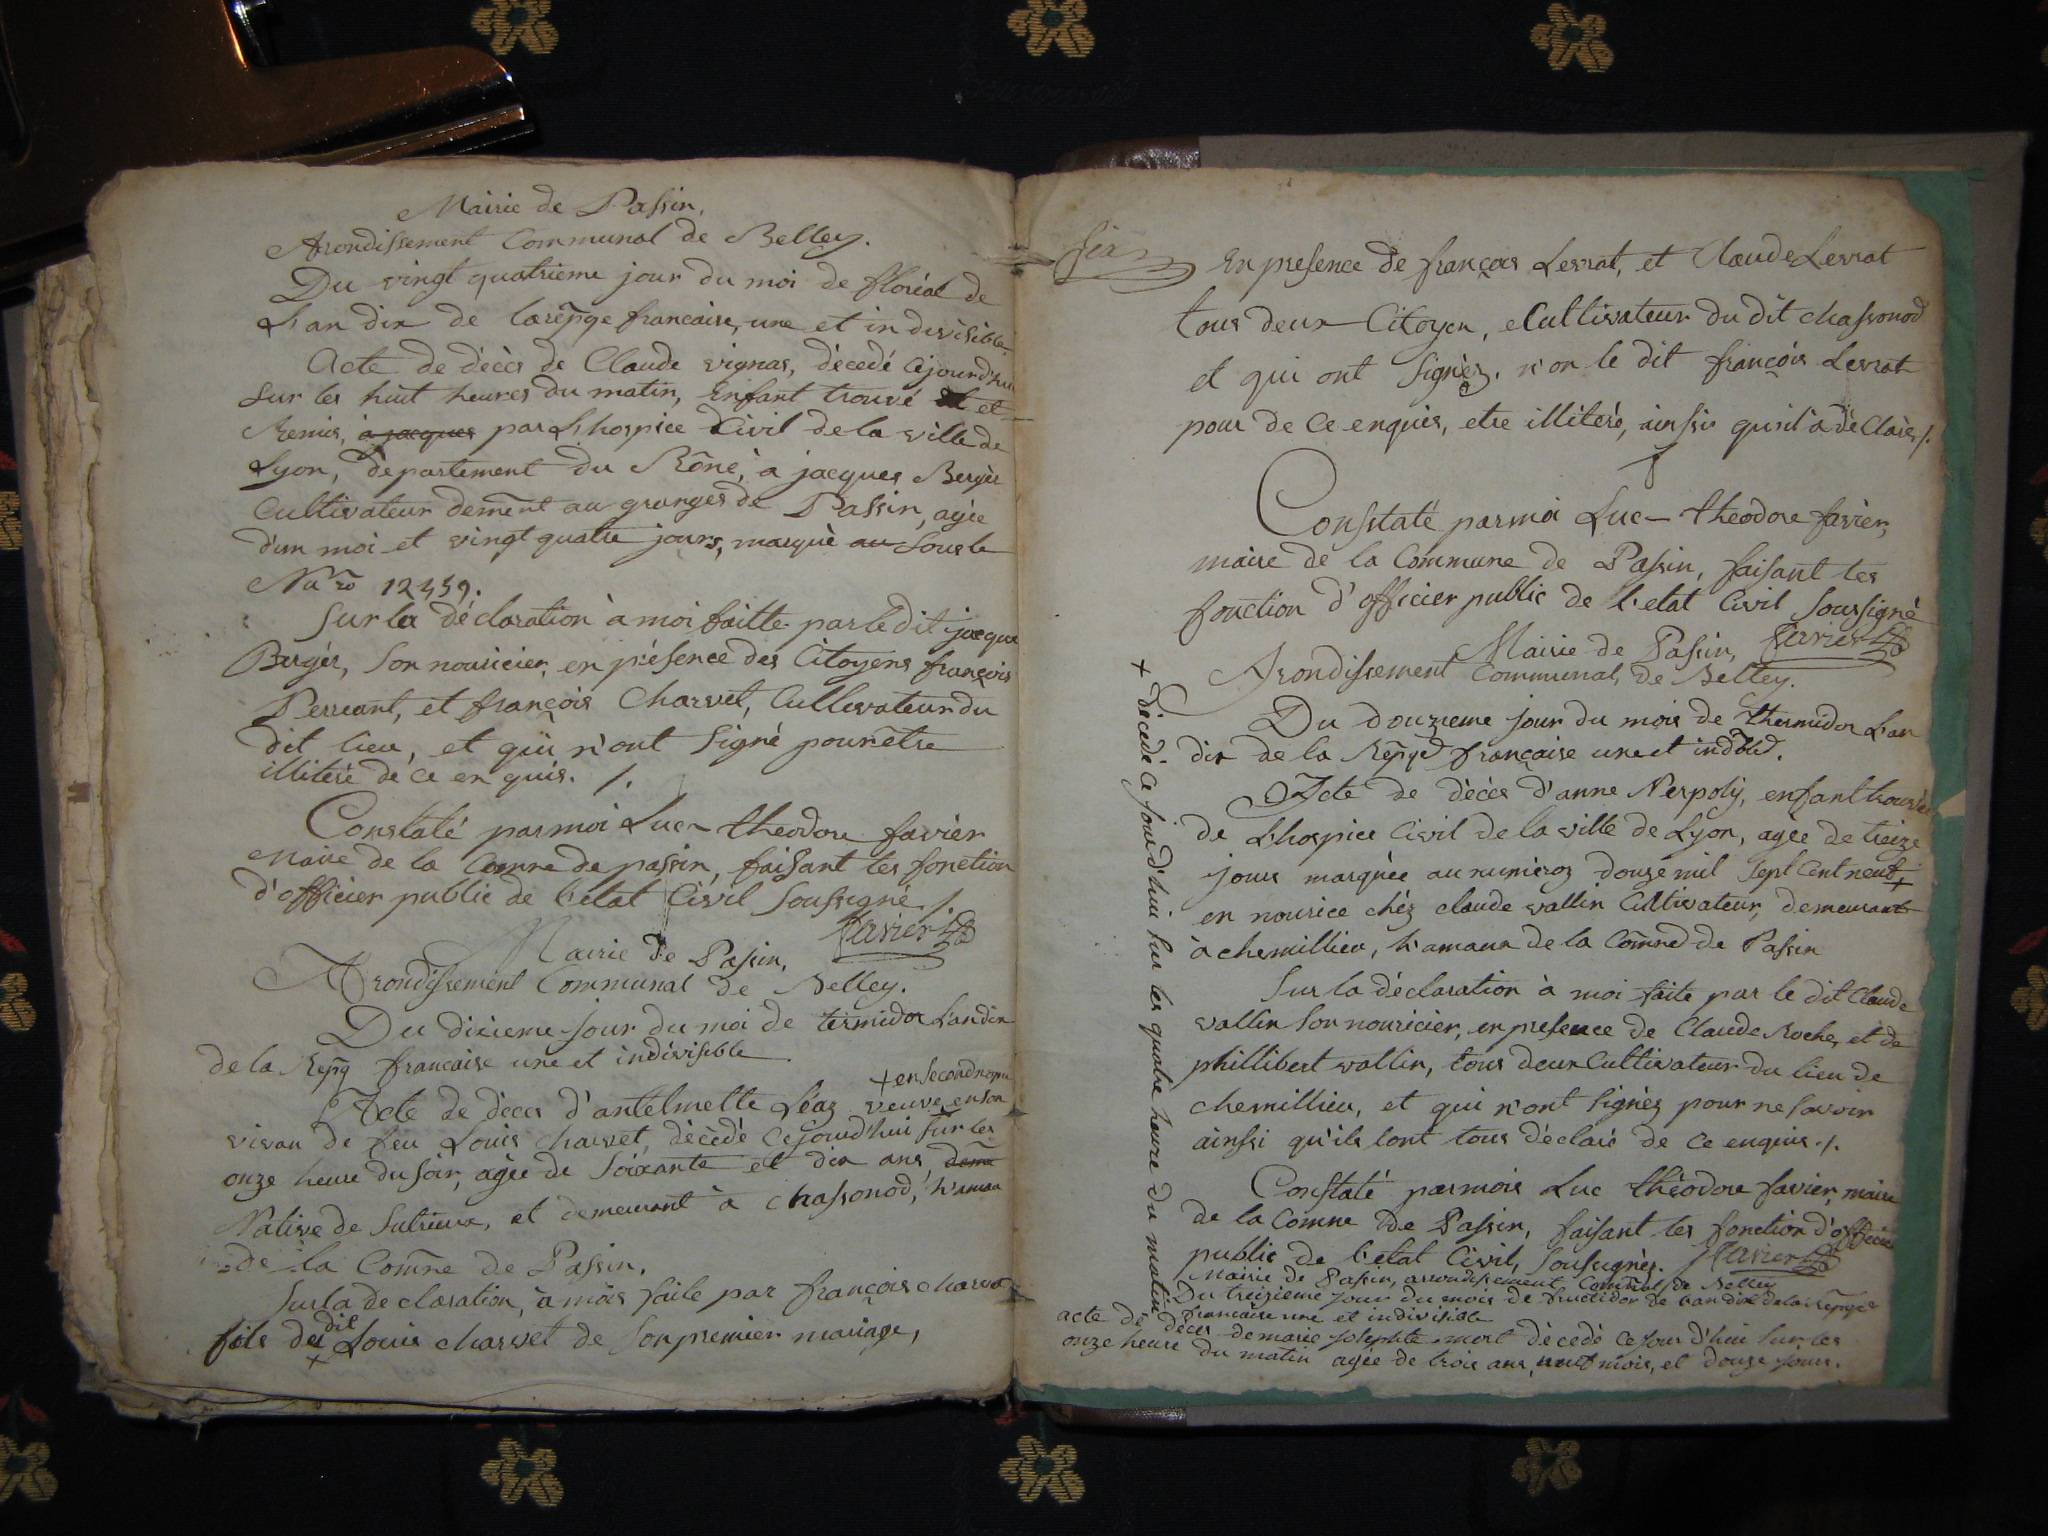 Mairie de Passin,
Arondissement Communal de Belley.
Du vingt quatrieme jour du moi de floréal de
L'an dix de larepge francaise, une et indivisible.
Acte de décès de Claude vignas, décedé cejourd'hui
sur les huit heures du matin, Enfant trouvé et
Remis, a jacques par L'hospice Civil de la ville de
Lyon, departement du Rône, à jacques Berger
Cultivateur demeñt au granges de Passin, agée
d'un moi et vingt quatre jours, marqué au sous le
Nuro 12459.
Sur la déclaration à moi faitte par le dit jacque
Bergér, son nouricier, en présence des Citoyens françois
Perreant, et françois Charvet, Cultivateur du
dit lieu, et qui n'ont signé pour être
illiteré de ce en quis. /.
Constaté par moi Luc theodore favier
Maire de la Comne de passin, faisant les fonction
d'officier public de l'etat Civil soussigné /.
favier
Mairie de Passin,
Arondissement Communal de Belley.
Du dixieme jour du moi de termidor L'an dix
de la Repq francaise une et indévisible
+ en second nopce
Acte de décès d'antelmette Léaz veuve en son
vivan de feu Louis charvet, décèdé ce jourd'hui sur les
onze heure du soir, agée de soixante et dix ans,
Native de Sutrieux, et demeurant à chassonod, h'amau
de la Comñe de Passin.
Sur la de claration, à mois faite par françois charvet
fils du dit Louis charvet de son premier mariage,
six
En presence de françois Levrat, et Claude Levrat
tous deux Citoyen, Cultivateur du dit chassonod
et qui ont signéz. n'on le dit françois Levrat
pour de ce enquis, etre illiteré, ainssi qu'il à déclaré /.
Constaté par moi Luc theodore favier,
maire de la Commune de Passin, faisant les
fonction d'officier public de l'etat Civil soussigné
favier
Mairie de Passin,
Arondissement Communal, de Belley.
Du douzieme jour du mois de thermidor L'an
dix de la Repqe française une et indble.
Acte de décès d'anne Nespoly, enfant trouvée
de L'hospice Civil de la ville de Lyon, agée de treize
jours marquée au numéroz douze mil sept Cent neuf +
en nourice chéz claude vallin Cultivateur, demeurant
à chemillieu, h'amaux de la Comñe de Passin
+ décédé ce jourd'hui sur les quatre heure du matin
Sur la déclaration à moi faite par le dit Claude
vallin son nouricier, en presence de Claude Roche, et de
phillibert vallin, tous deux Cultivateur du lieu de
chemillieu, et qui n'ont signéz pour ne savoir
ainssi qu'ils lont tous déclaré de ce enquis /.
Constaté par mois Luc théodore favier, maire
de la Comne de Passin, faisant les fonction d'officier
public de l'etat Civil, soussignéz. favier
Mairie de Passin, arrondissement Comunal de Belley
Du treizieme jour du mois de fructidor de l'an dix de la Repqe
francaise une et indivisible
acte de décès de marie josephte mort décedé ce jour d'hui sur les
onze heure du matin agée de trois ans, neuf mois, et douze jours.